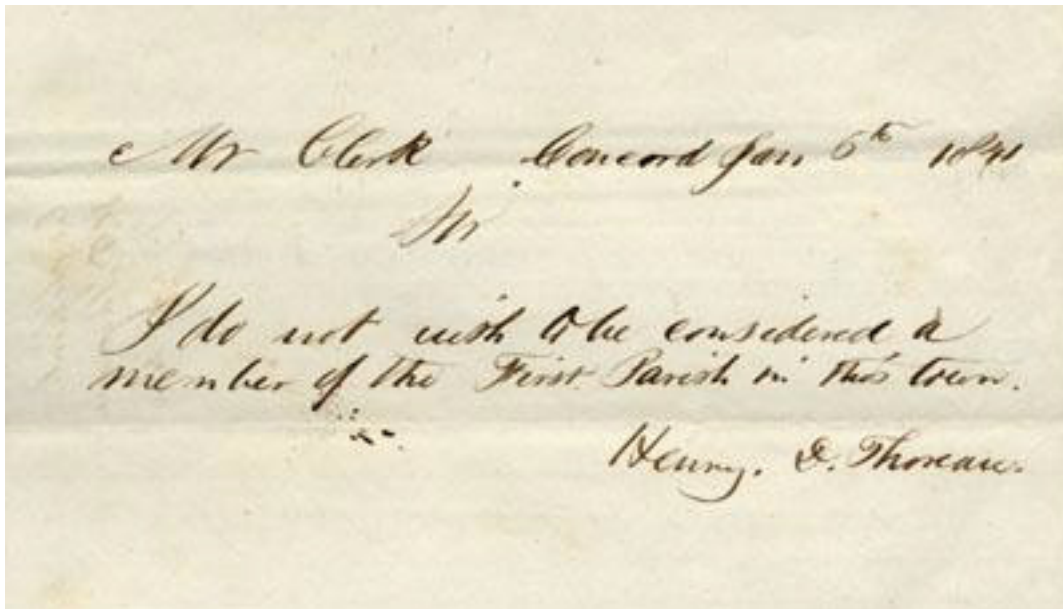 Mr Clerk Concord Jan 6th 1841
Sir
I do not wish to be considered a
member of the First Parish in this town.
Henry. D. Thoreau.